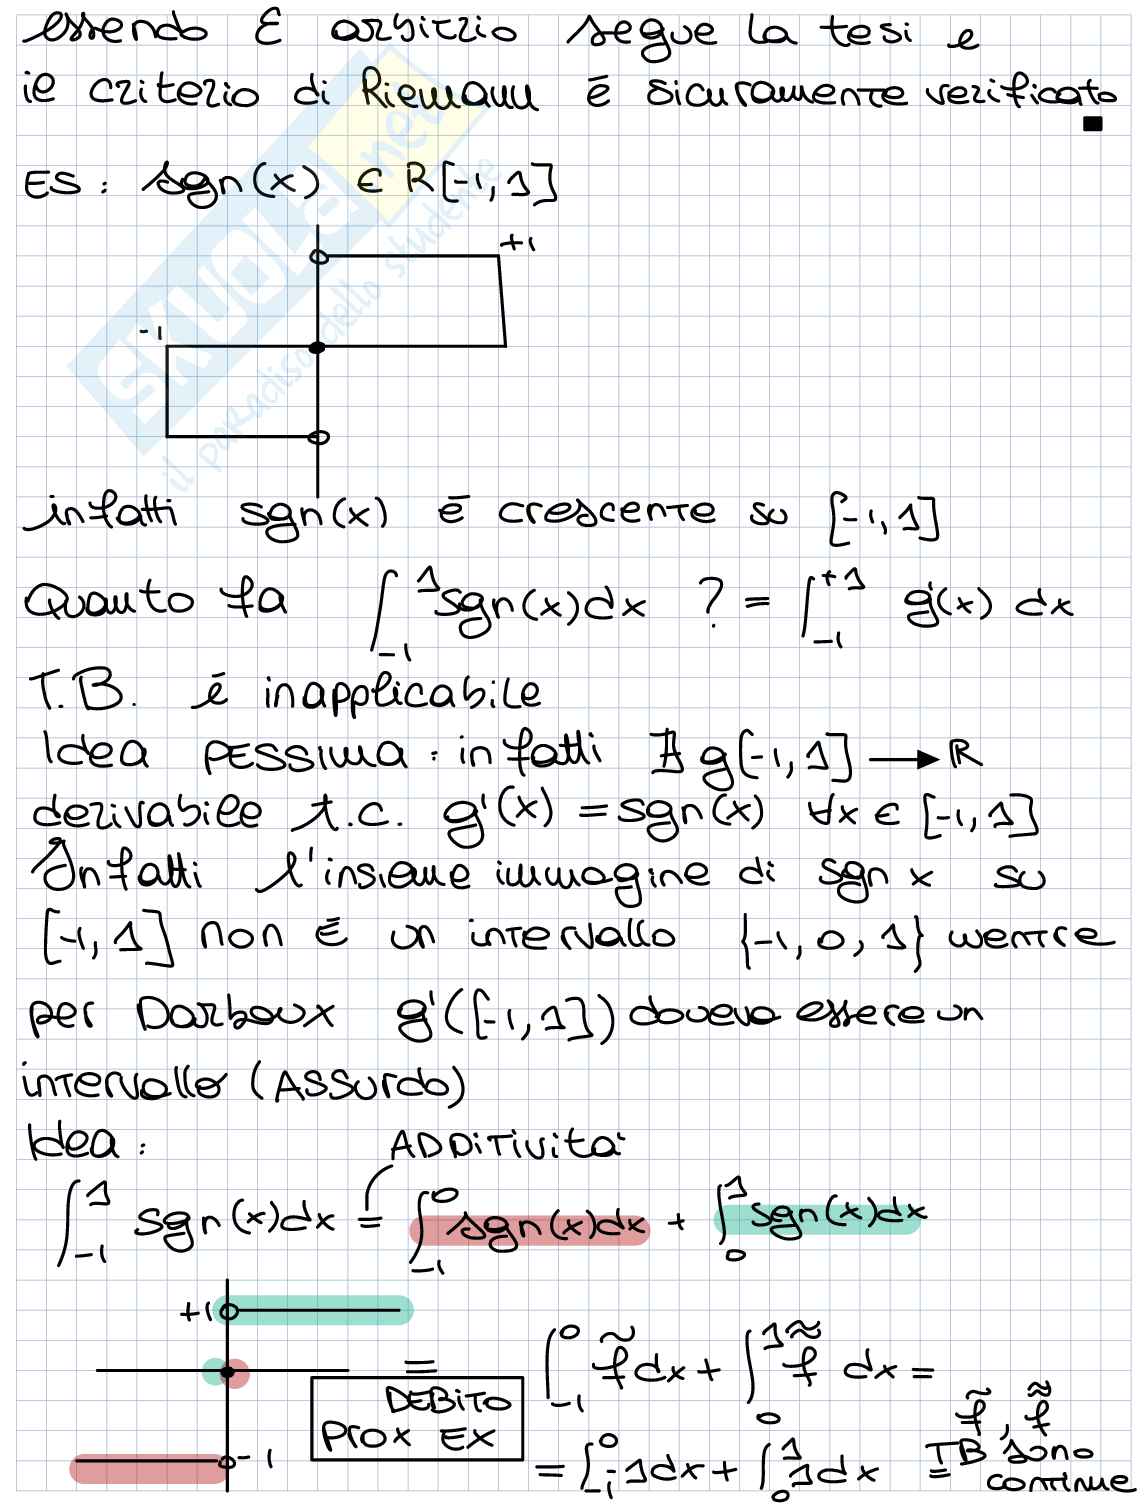 essendo ε arbitrio segue la tesi e
il criterio di Riemann è sicuramente verificato
■
ES: sgn(x) ∈ R[-1,1]
+1
-1
infatti sgn(x) è crescente su [-1,1]
Quanto fa ∫_{-1}^{1} sgn(x)dx ? = ∫_{-1}^{+1} g'(x) dx
T.B. è inapplicabile
Idea PESSIMA: infatti ∄ g[-1,1] → ℝ
derivabile t.c. g'(x) = sgn(x) ∀x ∈ [-1,1]
Infatti l'insieme immagine di sgn x su
[-1,1] non è un intervallo {-1,0,1} mentre
per Darboux g'([-1,1]) doveva essere un
intervallo (ASSURDO)
Idea: ADDITIVITA'
∫_{-1}^{1} sgn(x)dx = ∫_{-1}^{0} sgn(x)dx + ∫_{0}^{1} sgn(x)dx
+1
-1
DEBITO
PROX EX
= ∫_{-1}^{0} f̃ dx + ∫_{0}^{1} f̃̃ dx =
= ∫_{-1}^{0} -1dx + ∫_{0}^{1} 1dx = TB
f̃, f̃̃
sono
continue
SKUOLA.net
il paradiso dello studente